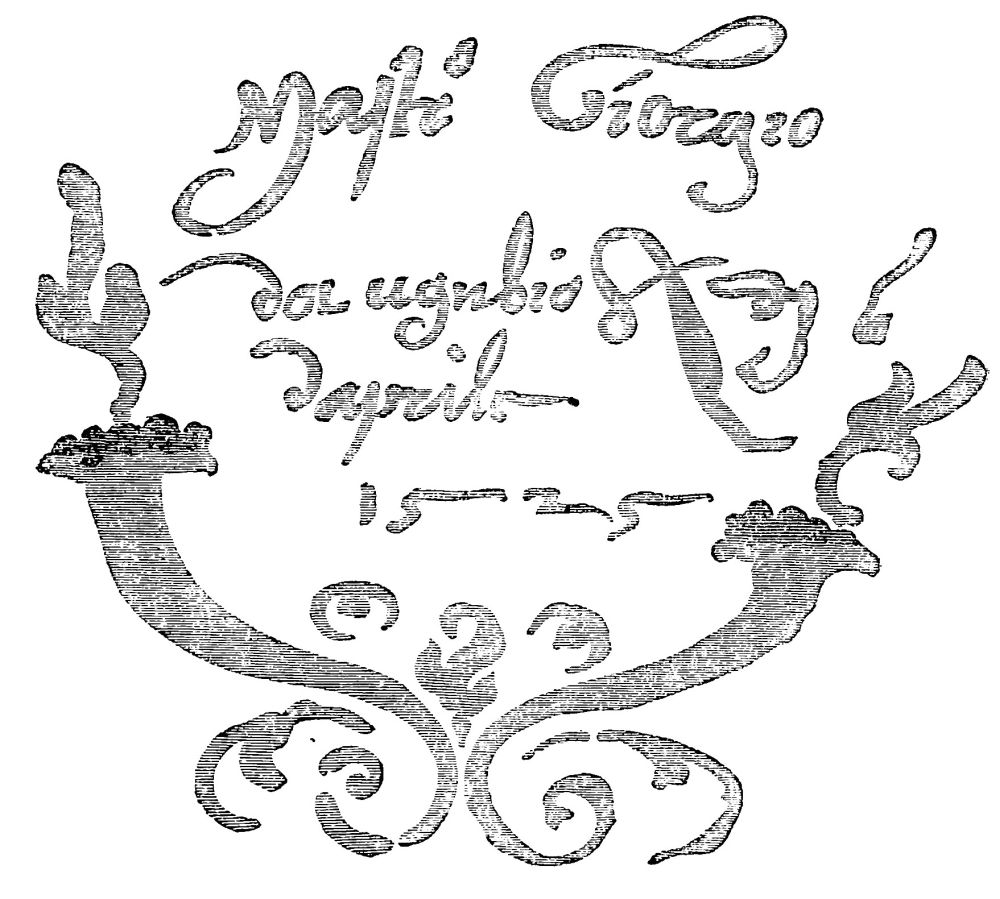 Mastro Giorgio
da ugubio A dj 6
daprile
1525